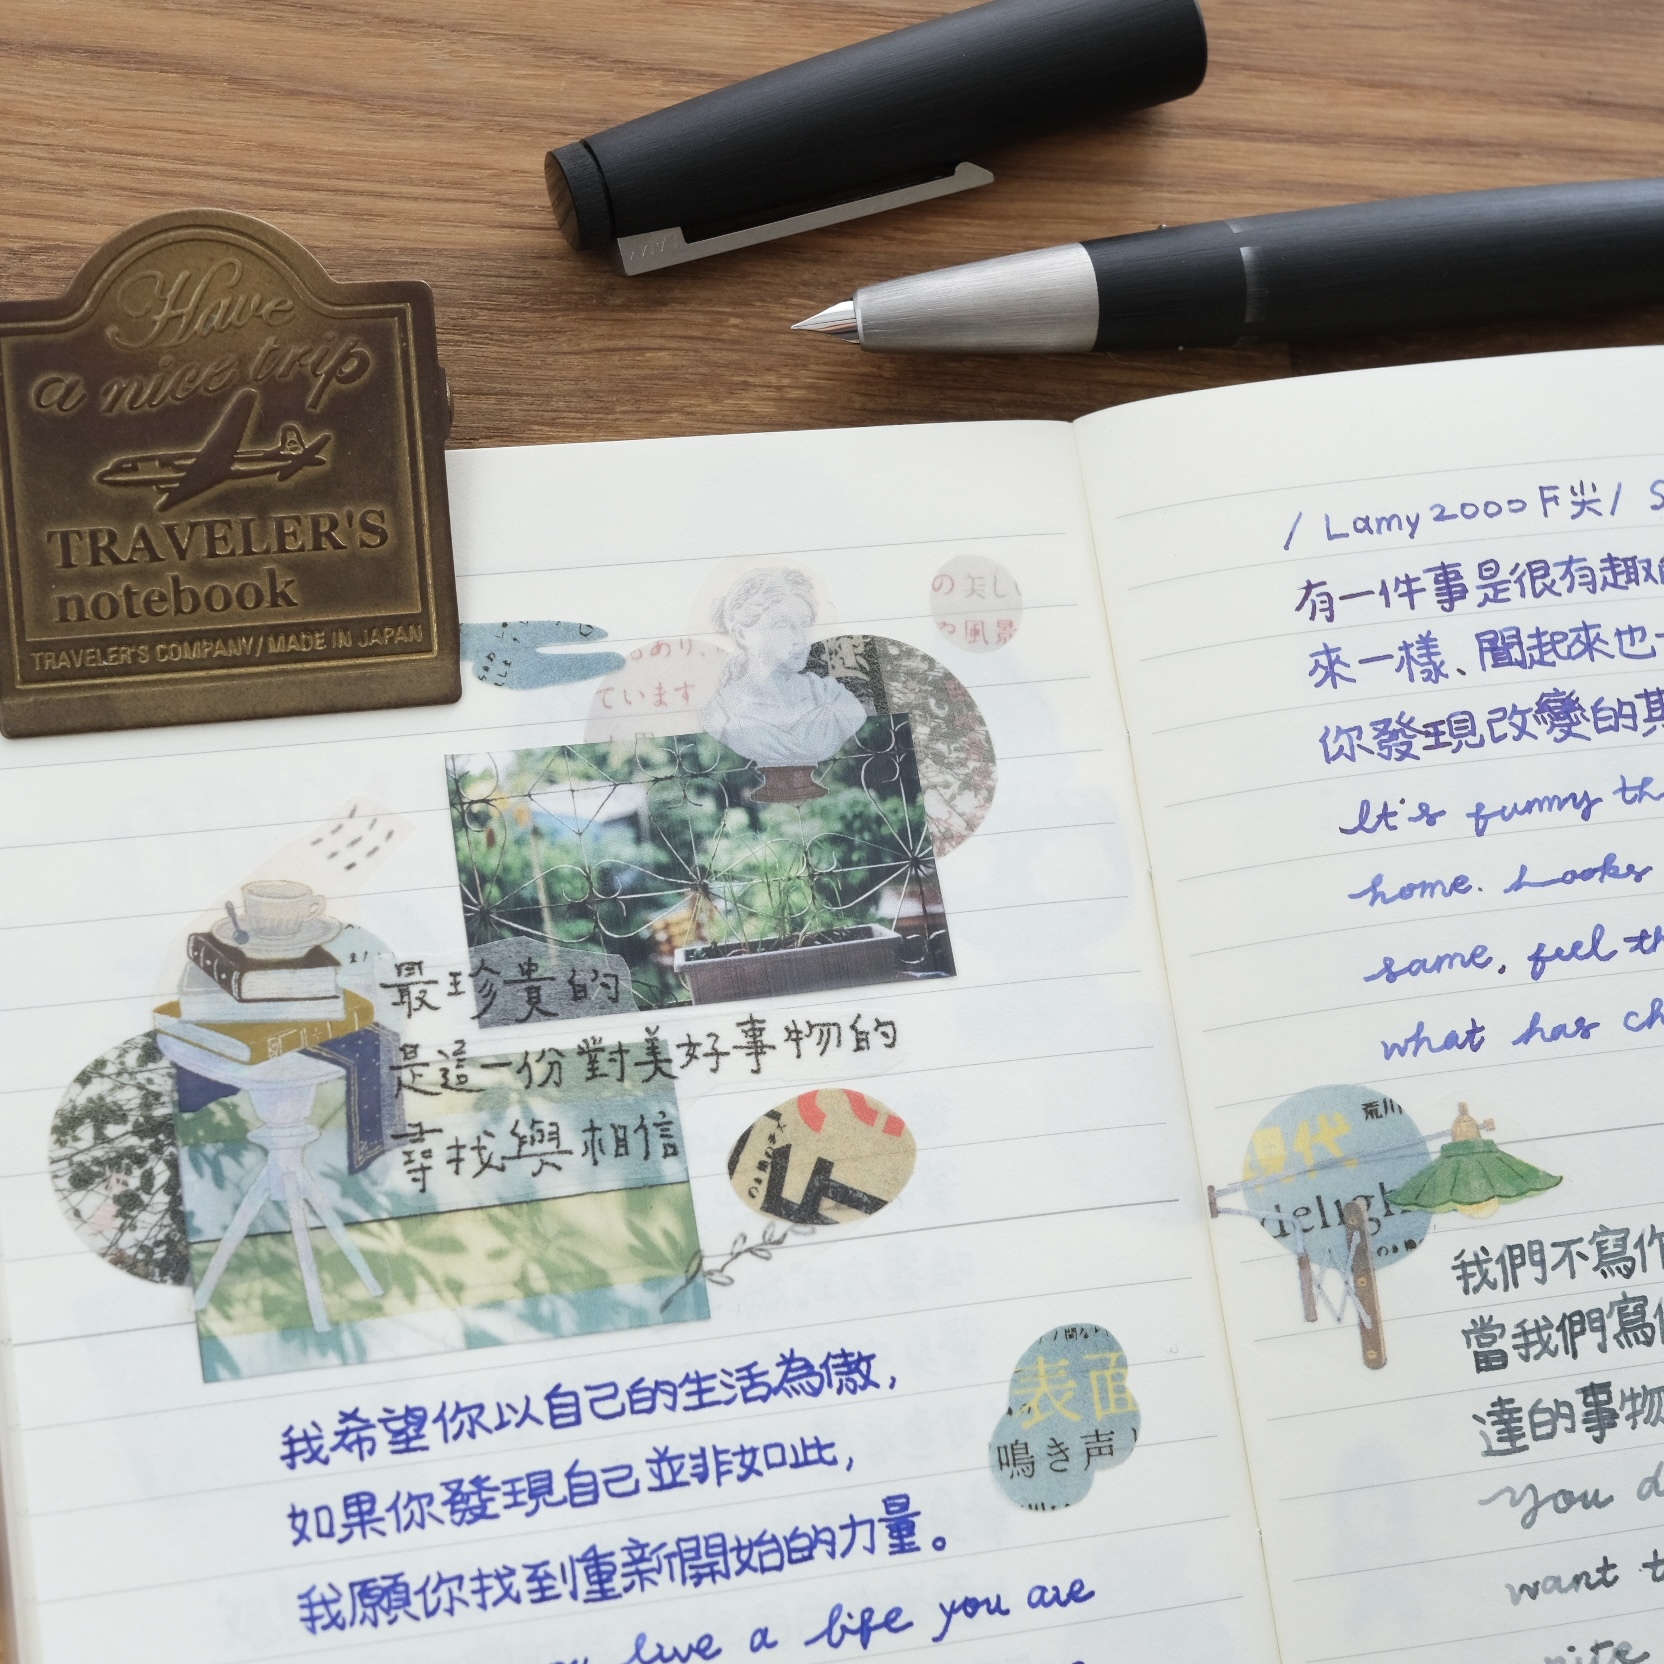 Have
a nice trip
TRAVELER'S
notebook
TRAVELER'S COMPANY/MADE IN JAPAN
LAMY
の美し
風景
あり、
ています
最珍貴的
是這一份對美好事物的
尋找與相信
我希望你以自己的生活為傲,
如果你發現自己並非如此,
我願你找到重新開始的力量。
live a life you are
表面
鳴き声
/ Lamy 2000 F尖/ S
有一件事是很有趣的
來一樣、聞起來也一
你發現改變的其
It's funny th
home. Looks
same, feel th
what has ch
荒川
代
deligh
我們不寫作
當我們寫作
達的事物
You d
want t